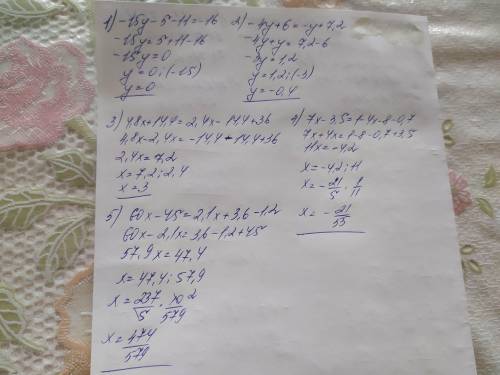 1) -15y-5-11=-16
-15y=5+11-16
-15y=0
y=0:(-15)
y=0
2) -4y+6=-y+7,2
-4y+y=7,2-6
-3y=1,2
y=1,2:(-3)
y=-0,4
3) 4,8x+14,4=2,4x-14,4+36
4,8x-2,4x=-14,4-14,4+36
2,4x=7,2
x=7,2:2,4
x=3
4) 7x-3,5=1-4x-8-0,7
7x+4x=1-8-0,7+3,5
11x=-4,2
x=-4,2:11
x=-21/5·1/11
x=-21/55
5) 60x-45=2,1x+3,6-1,2
60x-2,1x=3,6-1,2+45
57,9x=47,4
x=47,4:57,9
x=237/5·10 2/579
x=474/579